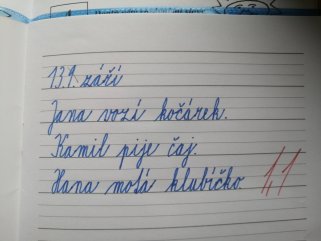 13.9. září
Jana vozí kočárek.
Kamil pije čaj.
Hana motá klubíčko.
1,1